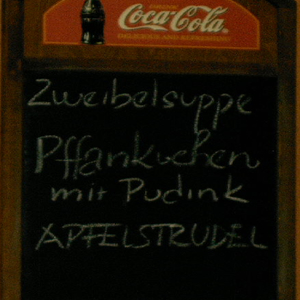 Coca-Cola
DELICIOUS AND REFRESHING
Zweibelsuppe
Pffankuchen
mit Pudink
APFELSTRUDEL